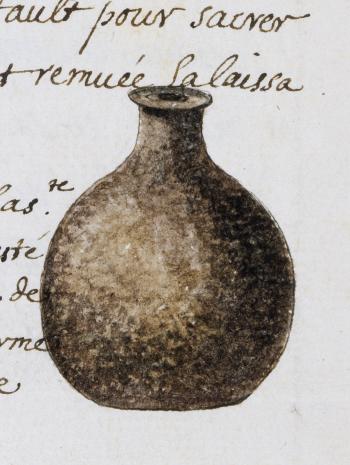 tault pour sacrer
t remuée Lalaissa
las.te
sté
de
rme
e